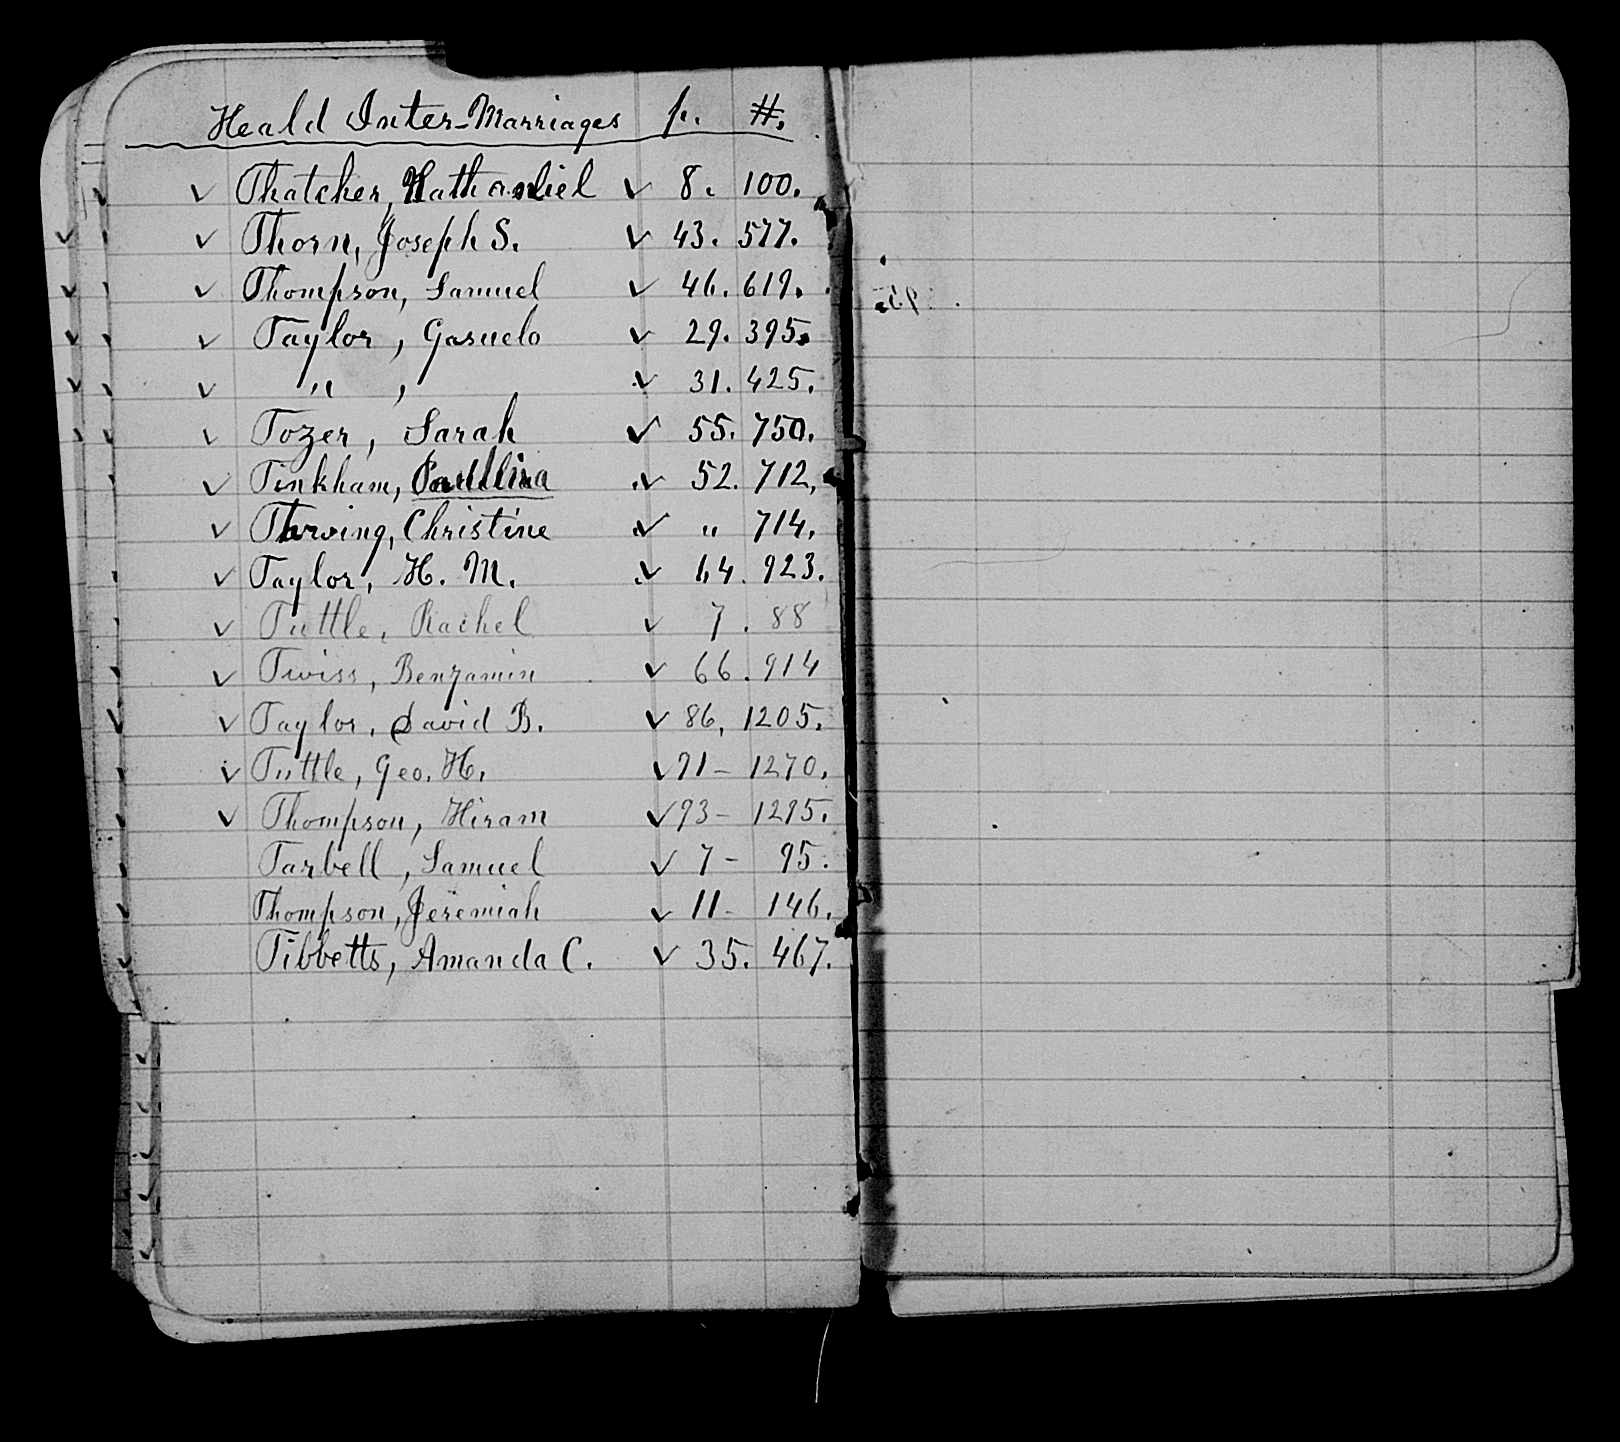 Heald Inter-Marriages p. #.
✓ Thatcher, Nathaniel ✓ 8. 100.
✓ Thorn, Joseph S. ✓ 43. 577.
✓ Thompson, Samuel ✓ 46. 619.
✓ Taylor, ✓ 29. 395.
✓ " , ✓ 31. 425.
✓ Tozer, Sarah ✓ 55. 750.
✓ Tinkham, Paullina ✓ 52. 712.
✓ Christine ✓ " 714.
✓ Taylor, H. M. ✓ 64. 923.
✓ Tuttle, Rachel ✓ 7. 88
✓ Twiss, Benjamin ✓ 66. 914
✓ Taylor, David B. ✓ 86, 1205.
✓ Tuttle, Geo. H. ✓ 91- 1270.
✓ Thompson, Hiram ✓ 93- 1295.
Tarbell, Samuel ✓ 7- 95.
Thompson, Jeremiah ✓ 11- 146.
Tibbetts, Amanda C. ✓ 35. 467.